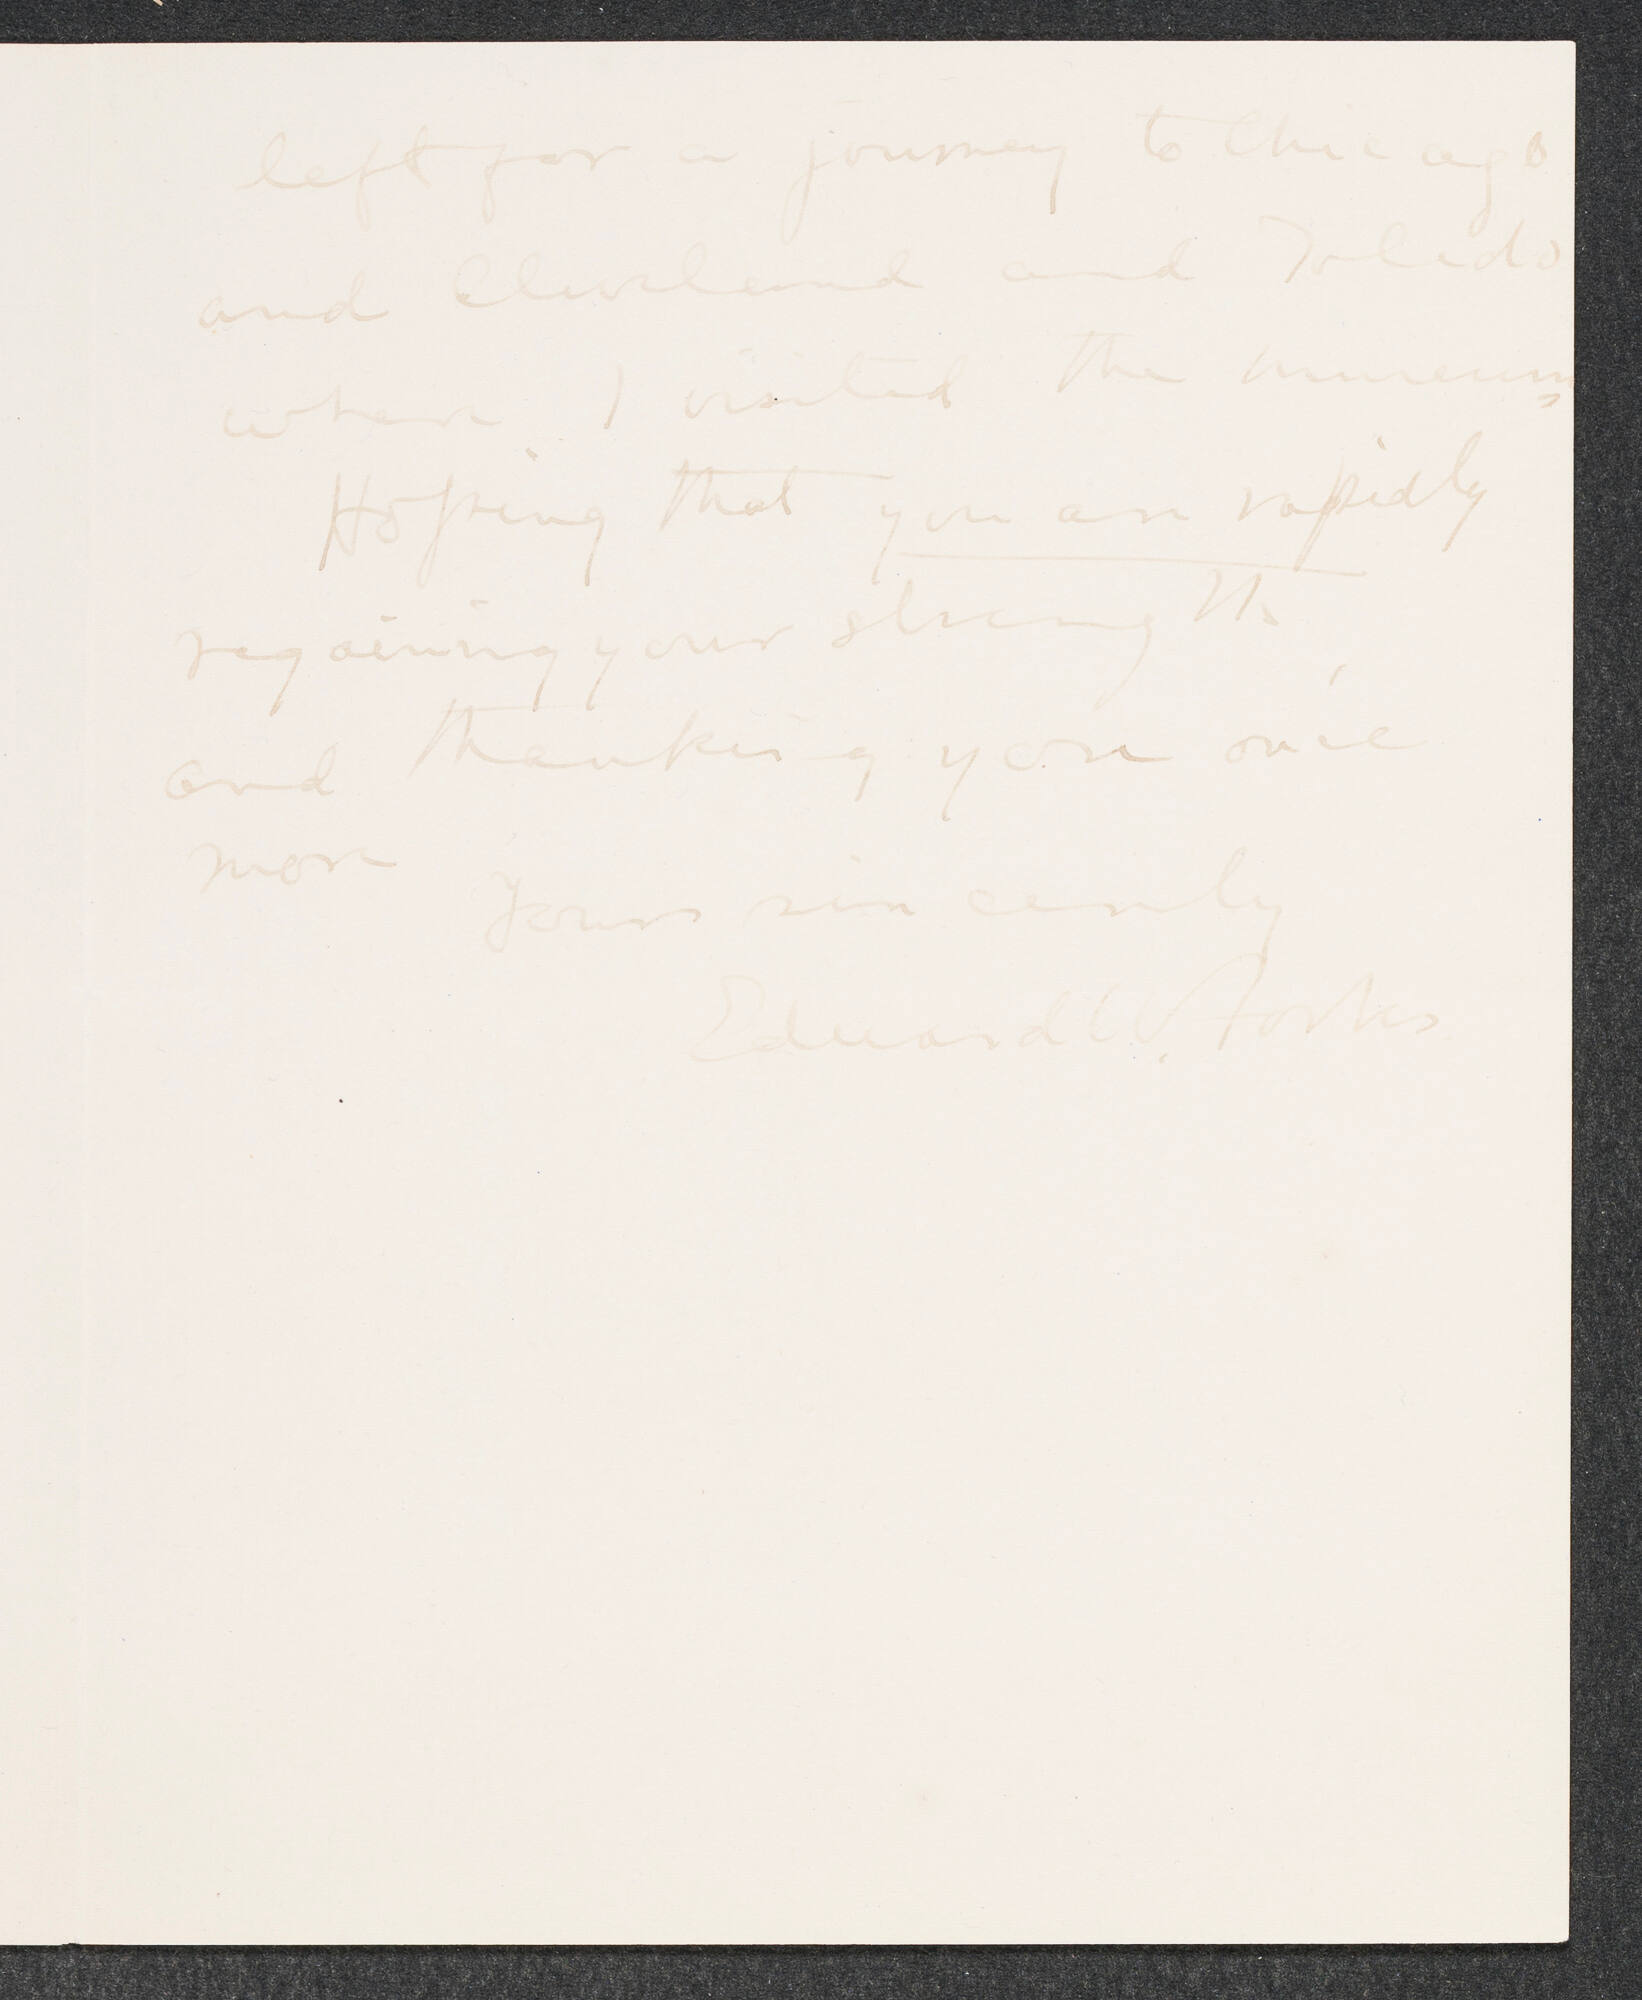 left for a journey to Chicago
and Cleveland and Toledo
where I visited the museums
Hoping that you are rapidly
regaining your strength,
and thanking you once
more
Yours sincerely
Edward W. Forbes